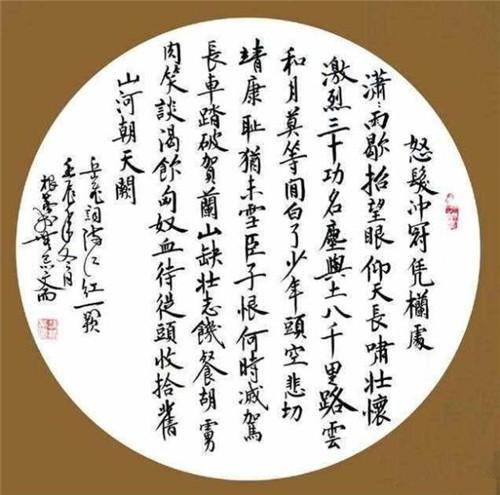 怒髮冲冠凭欄處
瀟々雨歇抬望眼仰天長嘯壯懷
激烈三十功名塵與土八千里路雲
和月莫等間白了少年頭空悲切
靖康耻猶未雪臣子恨何時滅駕
長車踏破賀蘭山缺壯志饑餐胡虜
肉笑談渴飲匈奴血待從頭收拾舊
山河朝天闕
岳飛詞滿江红一闋
壬辰年冬月